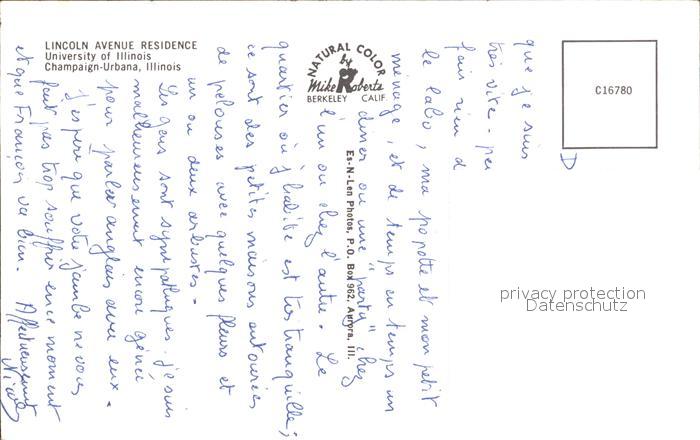 LINCOLN AVENUE RESIDENCE
University of Illinois
Champaign-Urbana, Illinois
NATURAL COLOR
by
Mike Roberts
BERKELEY CALIF.
C16780
Es-N-Len Photos, P.O. Box 962, Aurora, Ill.
D
que je suis
très vite - peu
fair rien d
le labo, ma popotte et mon petit
ménage, et de temps en temps un
diner ou une "party" chez
l'un ou chez l'autre. Le
quartier où j'habite est très tranquille;
ce sont des petites maisons entourées
de pelouses avec quelques fleurs et
un ou deux arbustes.
Les gens sont sympathiques. Je suis
malheureusement encore gênée
pour parler anglais avec eux.
J'espère que votre jambe ne vous
fait pas trop souffrir en ce moment
et que François va bien. Affectueusement
Nicole
privacy protection
Datenschutz